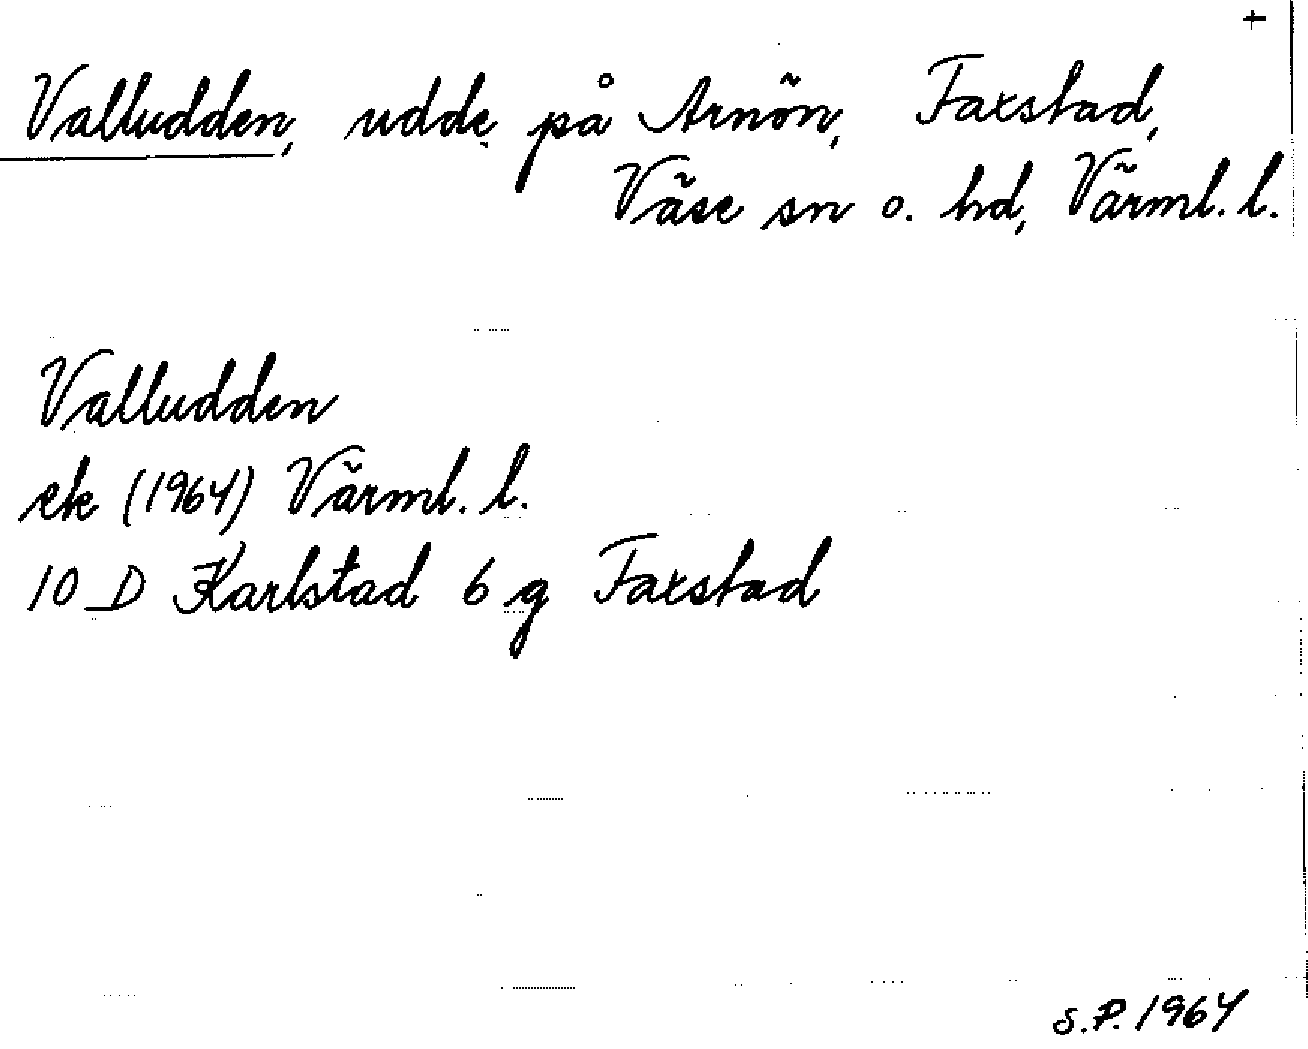 +
Valludden, udde på Arnön, Faxstad,
Väse sn o. hd, Värml. l.
Valludden
ek (1964) Värml. l.
10 D Karlstad 6 g Faxstad
S.P. 1964